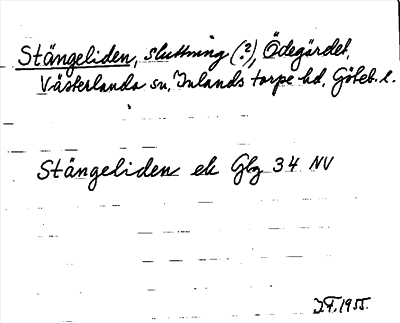 Stängeliden, sluttning (?), Ödegärdet,
Västerlanda sn, Inlands torpe hd, Göteb. l.
Stängeliden ek Gbg 34 NV
1955.